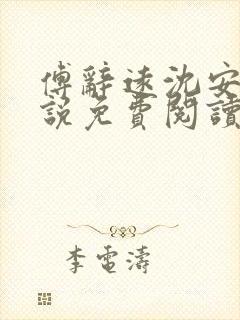 傅辭遠沈安
說免費閱讀
李電濤